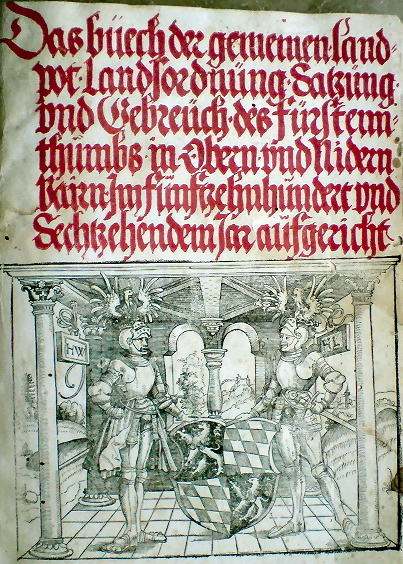 Das büech der gemeinen land-
pot · Landsordnüng · Satzüng
vnd Gebreüch · des fürstenn-
thumbs in Obern vnd Nidern
Bairn · Im fünfzehnhündert vnd
Sechtzehendem Jar aufgericht
HW
HL